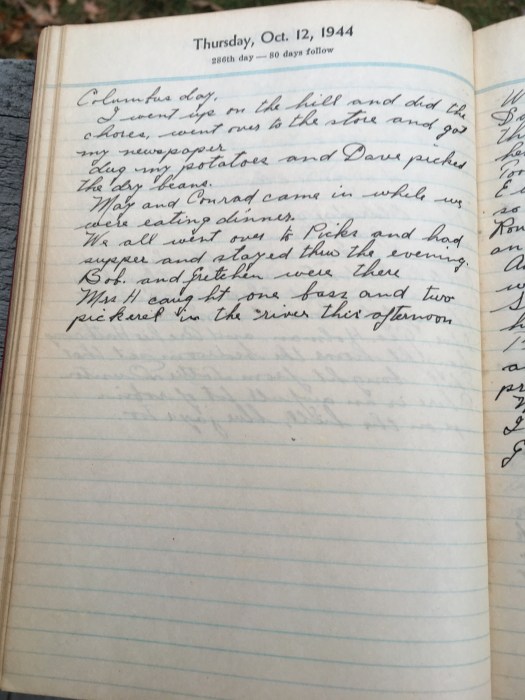 Thursday, Oct. 12, 1944
286th day — 80 days follow
Columbus day.
I went up on the hill and did the
chores, went over to the store and got
my newspaper
dug my potatoes and Dave picked
the dry beans.
May and Conrad came in while we
were eating dinner.
We all went over to Picks and had
supper and stayed thru the evening.
Bob. and Gretchen were there
Mrs H caught one bass and two
pickerel in the river this afternoon